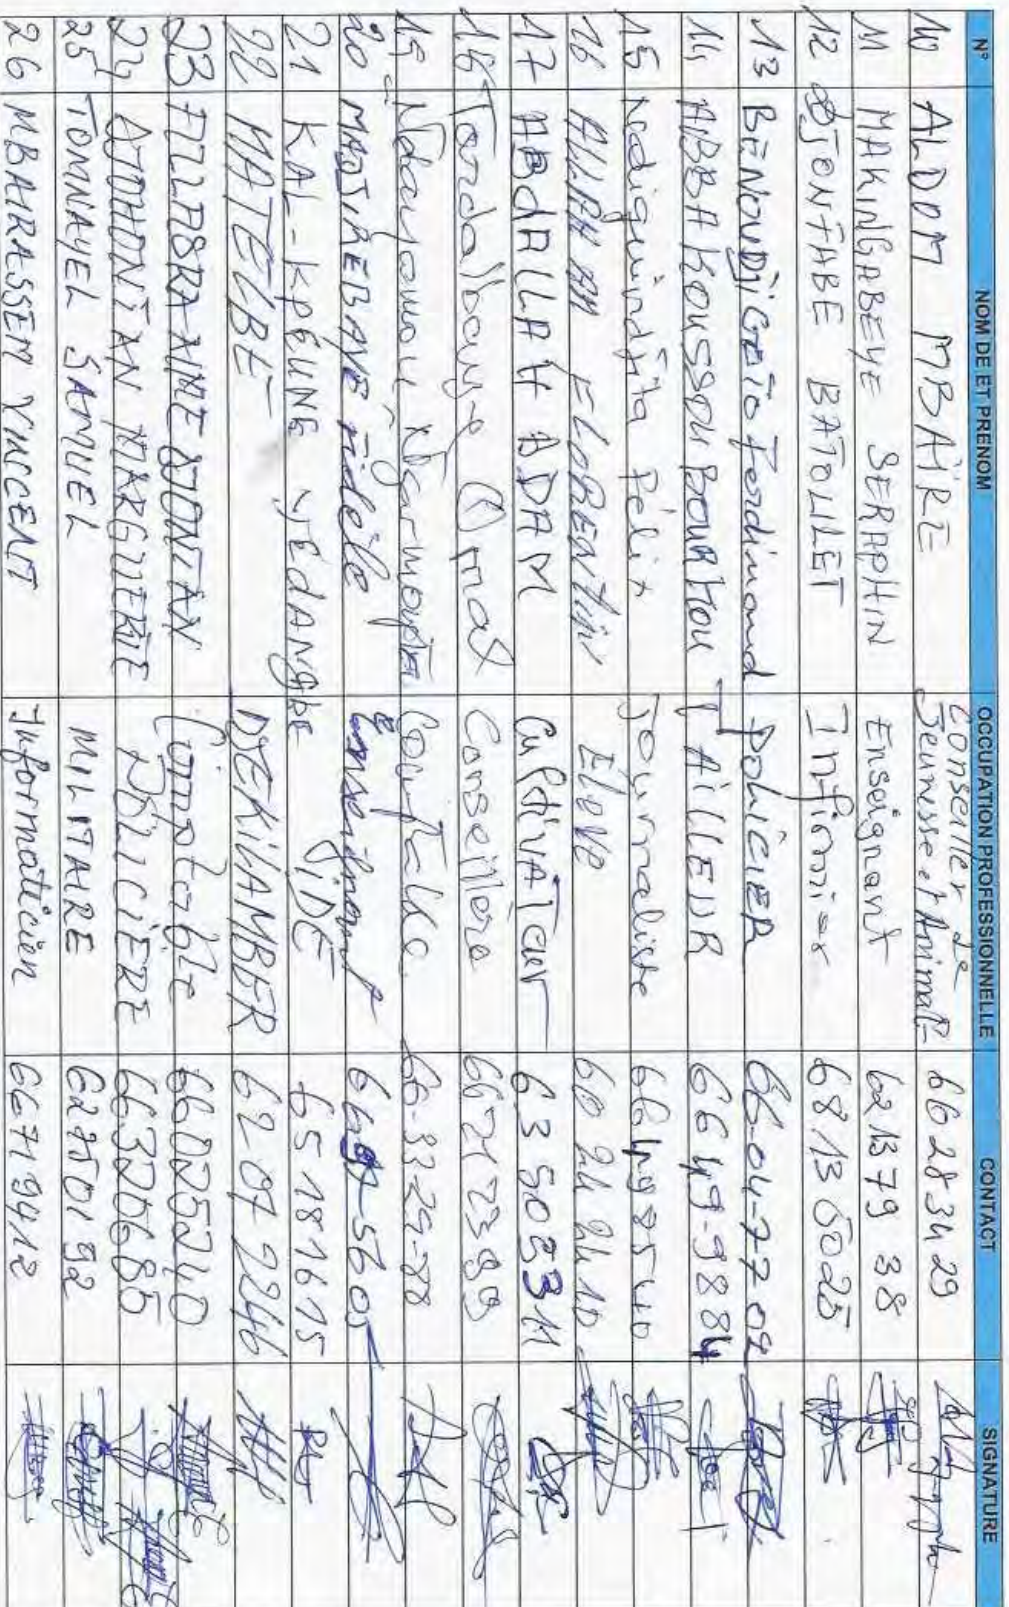 N° NOM DE ET PRENOM OCCUPATION PROFESSIONNELLE CONTACT SIGNATURE
10 ALDOM MBAÏRE Conseiller de Jeunesse et Animat- 66 28 34 29
11 MAKINGABEYE SERAPHIN Enseignant 62 13 79 38
12 DJONFABE BATOLLET Infirmier 68 13 50 25
13 BENOUDJI Ferdinand POLICIER 66-04-77 02
14 ABBA KOUSSOU BOURKOU TAILLEUR 66 49-98 84
15 Félix Journaliste 66 49 85 40
16 ALLAH FLORENTIN Eleve 60 24 24 10
17 ABdALLAH ADAM CULTIVATEUR 63 50 53 11
18 Tordalbaye Conseillere 66 21 23 99
19 66-33-29-88
20 MADJIREBAYE Fidele enseignant
21 KAL-KPEUNE YEDANGBE GIDE 65 18 16 15
22 MATELBE DJEKILAMBER 62 07 22 46
23 Comptable 66025240
24 MARGUERITE POLICIÈRE 66320685
25 TOMNAYEL SAMUEL MILITAIRE 62750192
26 MBAIRASSEM VINCENT Information 66719412